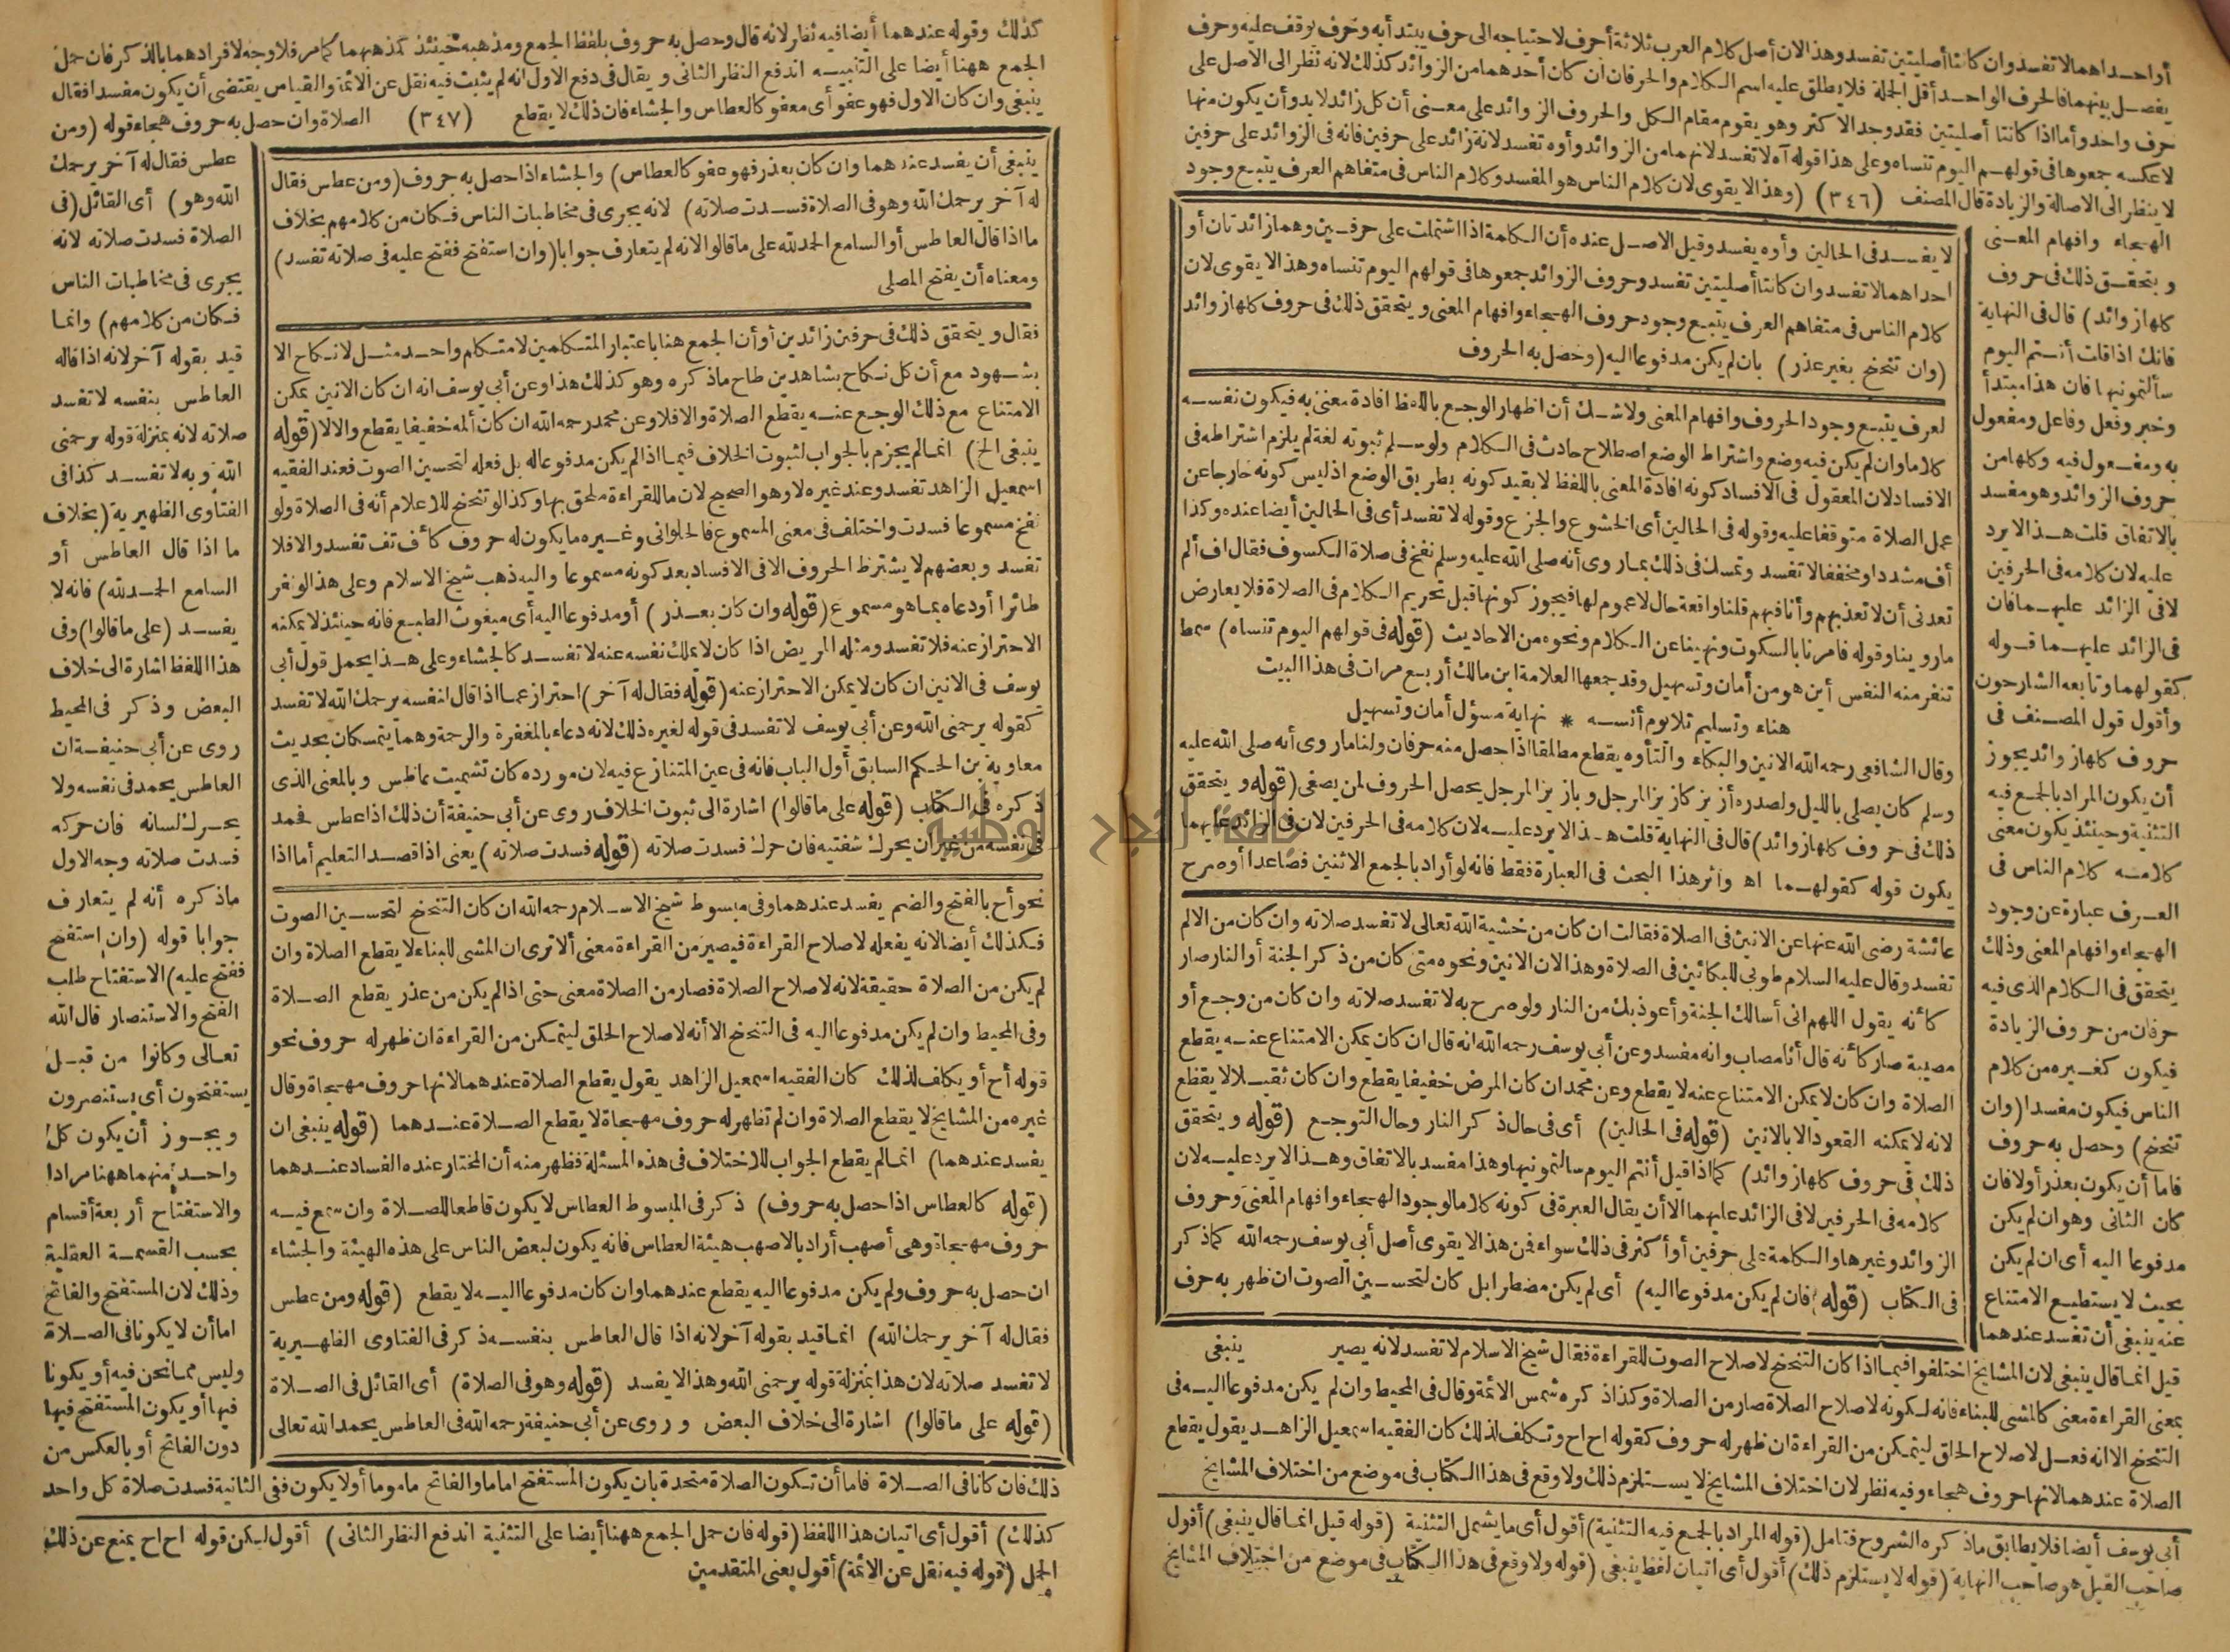 أو احداهما لا تفسد وان كانتا أصليتين تفسد وهذا لان أصل كلام العرب ثلاثة أحرف لاحتياجه الى حرف يبتدأ به وحرف يوقف عليه وحرف
يفصل بينهما فالحرف الواحد أقل الجملة فلا يطلق عليه اسم الكلام والحرفان ان كان أحدهما من الزوائد كذلك لانه نظر الى الاصل على
حرف واحد وأما اذا كانتا أصليتين فقد وجد الاكثر وهو يقوم مقام الكل والحروف الزوائد على معنى أن كل زائد لا بد وأن يكون منها
لا عكسه جمعوها فى قولهم اليوم تنساه وعلى هذا قوله آه لا تفسد لانهما من الزوائد وأوه تفسد لانه زائد على حرفين فانه فى الزوائد على حرفين
لا ينظر الى الاصالة والزيادة قال المصنف (٣٤٦) (وهذا لا يقوى لان كلام الناس هو المفسد وكلام الناس فى متفاهم العرف يتبع وجود
الهجاء وافهام المعنى
ويتحقق ذلك فى حروف
كلها زوائد) قال فى النهاية
فانك اذا قلت أنتم اليوم
سألتمونيها فان هذا مبتدأ
وخبر وفعل وفاعل ومفعول
به ومفعول فيه وكلها من
حروف الزوائد وهو مفسد
بالاتفاق قلت هذا لا يرد
عليه لان كلامه فى الحرفين
لا فى الزائد عليهما فان
فى الزائد عليهما قوله
كقولهما وتابعه الشارحون
وأقول قول المصنف فى
حروف كلها زوائد يجوز
أن يكون المراد بالجمع فيه
التثنية وحينئذ يكون معنى
كلامه كلام الناس فى
العرف عبارة عن وجود
الهجاء وافهام المعنى وذلك
يتحقق فى الكلام الذى فيه
حرفان من حروف الزيادة
فيكون كغيره من كلام
الناس فيكون مفسدا (وان
تنحنح) وحصل به حروف
فاما أن يكون بعذر أولا فان
كان الثانى وهو ان لم يكن
مدفوعا اليه أى ان لم يكن
بحيث لا يستطيع الامتناع
عنه ينبغى أن تفسد عندهما
لا يفسد فى الحالين وأوه يفسد وقيل الاصل عنده أن الكلمة اذا اشتملت على حرفين وهما زائدتان أو
احداهما لا تفسد وان كانتا أصليتين تفسد وحروف الزوائد جمعوها فى قولهم اليوم تنساه وهذا لا يقوى لان
كلام الناس فى متفاهم العرف يتبع وجود حروف الهجاء وافهام المعنى ويتحقق ذلك فى حروف كلها زوائد
(وان تنحنح بغير عذر) بان لم يكن مدفوعا اليه (وحصل به الحروف
لعرف يتبع وجود الحروف وافهام المعنى ولا شك أن اظهار الوجع باللفظ افادة معنى به فيكون نفسه
كلاما وان لم يكن فيه وضع واشتراط الوضع اصطلاح حادث فى الكلام ولو سلم ثبوته لغة لم يلزم اشتراطه فى
الافساد لان المعقول فى الافساد كونه افادة المعنى باللفظ لا بقيد كونه بطريق الوضع اذ ليس كونه خارجا عن
عمل الصلاة متوقفا عليه وقوله فى الحالين أى الخشوع والجزع وقوله لا تفسد أى فى الحالين أيضا عنده وكذا
أف مشددا ومخففا لا تفسد وتمسك فى ذلك بما روى أنه صلى الله عليه وسلم نفخ فى صلاة الكسوف فقال اف ألم
تعدنى أن لا تعذبهم وأنا فيهم قلنا واقعة حال لا عموم لها فيجوز كونها قبل تحريم الكلام فى الصلاة فلا يعارض
ما روينا وقوله فامرنا بالسكوت ونهينا عن الكلام ونحوه من الاحاديث (قوله فى قولهم اليوم تنساه) سمط
تنفر منه النفس أين هو من أمان وتسهيل وقد جمعها العلامة ابن مالك أربع مرات فى هذا البيت
هناء وتسليم تلا يوم أنسه * نهاية مسؤل أمان وتسهيل
وقال الشافعى رحمه الله الانين والبكاء والتأوه يقطع مطلقا اذا حصل منه حرفان ولنا ما روى أنه صلى الله عليه
وسلم كان يصلى بالليل ولصدره أزيز كازيز المرجل وبازيز المرجل يحصل الحروف لمن يصغى (قوله ويتحقق
ذلك فى حروف كلها زوائد) قال فى النهاية قلت هذا لا يرد عليه لان كلامه فى الحرفين لان فى الزائد عليهما
يكون قوله كقولهما اه وأثر هذا البحث فى العبارة فقط فانه لو أراد بالجمع الاثنين فصاعدا أوه صرح
عائشة رضى الله عنها عن الانين فى الصلاة فقالت ان كان من خشية الله تعالى لا تفسد صلاته وان كان من الالم
تفسد وقال عليه السلام طوبى للبكائين فى الصلاة وهذا لان الانين ونحوه متى كان من ذكر الجنة أو النار صار
كأنه يقول اللهم انى أسالك الجنة وأعوذ بك من النار ولو صرح به لا تفسد صلاته وان كان من وجع أو
مصيبة صار كأنه قال أنا مصاب وانه مفسد وعن أبى يوسف رحمه الله انه قال ان كان يمكن الامتناع عنه يقطع
الصلاة وان كان لا يمكن الامتناع عنه لا يقطع وعن محمد ان كان المرض خفيفا يقطع وان كان ثقيلا لا يقطع
لانه لا يمكنه القعود الا بالانين (قوله فى الحالين) أى فى حال ذكر النار وحال التوجع (قوله ويتحقق
ذلك فى حروف كلها زوائد) كما اذا قيل أنتم اليوم سالتمونيها وهذا مفسد بالاتفاق وهذا لا يرد عليه لان
كلامه فى الحرفين لا فى الزائد عليهما الا أن يقال العبرة فى كونه كلاما لوجود الهجاء وافهام المعنى وحروف
الزوائد وغيرها والكلمة على حرفين أو أكثر فى ذلك سواء فمن هذا لا يقوى أصل أبى يوسف رحمه الله كما ذكر
فى الكتاب (قوله فان لم يكن مدفوعا اليه) أى لم يكن مضطرا بل كان لتحسين الصوت ان ظهر به حرف
ينبغى
قيل انما قال ينبغى لان المشايخ اختلفوا فيما اذا كان التنحنح لاصلاح الصوت للقراءة فقال شيخ الاسلام لا تفسد لانه يصير
بمعنى القراءة معنى كالمشى للبناء فانه لكونه لاصلاح الصلاة صار من الصلاة وكذا ذكره شمس الائمة وقال فى المحيط وان لم يكن مدفوعا اليه فى
التنحنح الا انه فعل لاصلاح الحلق ليتمكن من القراءة ان ظهر له حروف كقوله اح اح وتكلف لذلك كان الفقيه اسمعيل الزاهد يقول يقطع
الصلاة عندهما لانها حروف هجاء وفيه نظر لان اختلاف المشايخ لا يستلزم ذلك ولا وقع فى هذا الكتاب فى موضع من اختلاف المشايخ
أبى يوسف أيضا فلا يطابق ما ذكره الشروح فتامل (قوله المراد بالجمع فيه التثنية) أقول أى ما يشمل التثنية (قوله قيل انما قال ينبغى) أقول
صاحب القيل هو صاحب النهاية (قوله لا يستلزم ذلك) أقول أى اتيان لفظ ينبغى (قوله ولا وقع فى هذا الكتاب فى موضع من اختلاف المشايخ
كذلك وقوله عندهما أيضا فيه نظر لانه قال وحصل به حروف بلفظ الجمع ومذهبه حينئذ كمذهبهما كما مر فلا وجه لافرادهما بالذكر فان حمل
الجمع ههنا أيضا على التثنية اندفع النظر الثانى ويقال فى دفع الاول انه لم يثبت فيه نقل عن الائمة والقياس يقتضى أن يكون مفسدا فقال
ينبغى وان كان الاول فهو عفو أى معفو كالعطاس والجشاء فان ذلك لا يقطع (٣٤٧) الصلاة وان حصل به حروف هجاء قوله (ومن
ينبغى أن يفسد عندهما وان كان بعذر فهو عفو كالعطاس) والجشاء اذا حصل به حروف (ومن عطس فقال
له آخر يرحمك الله وهو فى الصلاة فسدت صلاته) لانه يجرى فى مخاطبات الناس فكان من كلامهم بخلاف
ما اذا قال العاطس أو السامع الحمد لله على ما قالوا لانه لم يتعارف جوابا (وان استفتح ففتح عليه فى صلاته تفسد)
ومعناه أن يفتح المصلى
فقال ويتحقق ذلك فى حرفين زائدين أو أن الجمع هنا باعتبار المتكلمين لا متكلم واحد مثل لا نكاح الا
بشهود مع أن كل نكاح بشاهدين طاح ما ذكره وهو كذلك هذا وعن أبى يوسف انه ان كان الانين يمكن
الامتناع مع ذلك الوجع عنه يقطع الصلاة والا فلا وعن محمد رحمه الله ان كان ألمه خفيفا يقطع والا لا (قوله
ينبغى الخ) انما لم يجزم بالجواب لثبوت الخلاف فيما اذا لم يكن مدفوعا له بل فعله لتحسين الصوت فعند الفقيه
اسمعيل الزاهد تفسد وعند غيره لا وهو الصحيح لان ما للقراءة ملحق بها وكذا لو تنحنح للاعلام أنه فى الصلاة ولو
نفخ مسموعا فسدت واختلف فى معنى المسموع فالحلوانى وغيره ما يكون له حروف كأف تف تفسد والا فلا
تفسد وبعضهم لا يشترط الحروف الا فى الافساد بعد كونه مسموعا واليه ذهب شيخ الاسلام وعلى هذا لو نفر
طائرا أو دعاه بما هو مسموع (قوله وان كان بعذر) أو مدفوعا اليه أى مبغوث الطبع فانه حينئذ لا يمكنه
الاحتراز عنه فلا تفسد ومثله المريض اذا كان لا يملك نفسه عنه لا تفسد كالجشاء وعلى هذا يحمل قول أبى
يوسف فى الانين ان كان لا يمكن الاحتراز عنه (قوله فقال له آخر) احتراز عما اذا قال لنفسه يرحمك الله لا تفسد
كقوله يرحمنى الله وعن أبى يوسف لا تفسد فى قوله لغيره ذلك لانه دعاء بالمغفرة والرحمة وهما يتمسكان بحديث
معاوية بن الحكم السابق أول الباب فانه فى عين المتنازع فيه لان مورده كان تشميت عاطس وبالمعنى الذى
ذكره فى الكتاب (قوله على ما قالوا) اشارة الى ثبوت الخلاف روى عن أبى حنيفة أن ذلك اذا عطس فحمد
فى نفسه من غير ان يحرك شفتيه فان حرك فسدت صلاته (قوله فسدت صلاته) يعنى اذا قصد التعليم أما اذا
نحو أح بالفتح والضم يفسد عندهما وفى مبسوط شيخ الاسلام رحمه الله ان كان التنحنح لتحسين الصوت
فكذلك أيضا لانه يفعله لاصلاح القراءة فيصير من القراءة معنى ألا ترى ان المشى للبناء لا يقطع الصلاة وان
لم يكن من الصلاة حقيقة لانه لاصلاح الصلاة فصار من الصلاة معنى حتى اذا لم يكن من عذر يقطع الصلاة
وفى المحيط وان لم يكن مدفوعا اليه فى التنحنح الا أنه لاصلاح الحلق ليتمكن من القراءة ان ظهر له حروف نحو
قوله أح أو يكلف لذلك كان الفقيه اسمعيل الزاهد يقول يقطع الصلاة عندهما لانها حروف مهجاة وقال
غيره من المشايخ لا يقطع الصلاة وان لم تظهر له حروف مهجاة لا يقطع الصلاة عندهما (قوله ينبغى ان
يفسد عندهما) انما لم يقطع الجواب للاختلاف فى هذه المسئلة فظهر منه أن المختار عنده الفساد عندهما
(قوله كالعطاس اذا حصل به حروف) ذكر فى المبسوط العطاس لا يكون قاطعا للصلاة وان سمع فيه
حروف مهجاة وهى أصهب أراد بالاصهب هيئة العطاس فانه يكون لبعض الناس على هذه الهيئة والجشاء
ان حصل به حروف ولم يكن مدفوعا اليه يقطع عندهما وان كان مدفوعا اليه لا يقطع (قوله ومن عطس
فقال له آخر يرحمك الله) انما قيد بقوله آخر لانه اذا قال العاطس بنفسه ذكر فى الفتاوى الظهيرية
لا تفسد صلاته لان هذا بمنزلة قوله يرحمنى الله وهذا لا يفسد (قوله وهو فى الصلاة) أى القائل فى الصلاة
(قوله على ما قالوا) اشارة الى خلاف البعض وروى عن أبى حنيفة رحمه الله فى العاطس يحمد الله تعالى
عطس فقال له آخر يرحمك
الله وهو) أى القائل (فى
الصلاة فسدت صلاته لانه
يجرى فى مخاطبات الناس
فكان من كلامهم) وانما
قيد بقوله آخر لانه اذا قاله
العاطس بنفسه لا تفسد
صلاته لانه بمنزلة قوله يرحمنى
الله وبه لا تفسد كذا فى
الفتاوى الظهيرية (بخلاف
ما اذا قال العاطس أو
السامع الحمد لله) فانه لا
يفسد (على ما قالوا) وفى
هذا اللفظ اشارة الى خلاف
البعض وذكر فى المحيط
روى عن أبى حنيفة ان
العاطس يحمد فى نفسه ولا
يحرك لسانه فان حركه
فسدت صلاته وجه الاول
ما ذكره أنه لم يتعارف
جوابا قوله (وان استفتح
ففتح عليه) الاستفتاح طلب
الفتح والاستنصار قال الله
تعالى وكانوا من قبل
يستفتحون أى يستنصرون
ويجوز أن يكون كل
واحد منهما ههنا مرادا
والاستفتاح أربعة أقسام
بحسب القسمة العقلية
وذلك لان المستفتح والفاتح
اما أن لا يكونا فى الصلاة
وليس مما نحن فيه أو يكونا
فيها أو يكون المستفتح فيها
دون الفاتح أو بالعكس من
ذلك فان كانا فى الصلاة فاما أن تكون الصلاة متحدة بان يكون المستفتح اماما والفاتح ماموما أو لا يكون ففى الثانية فسدت صلاة كل واحد
كذلك) أقول أى اتيان هذا اللفظ (قوله فان حمل الجمع ههنا أيضا على التثنية اندفع النظر الثانى) أقول ليكن قوله اح اح يمنع عن ذلك
الحمل (قوله فيه نقل عن الائمة) أقول يعنى المتقدمين
جامعة النجاح الوطنية